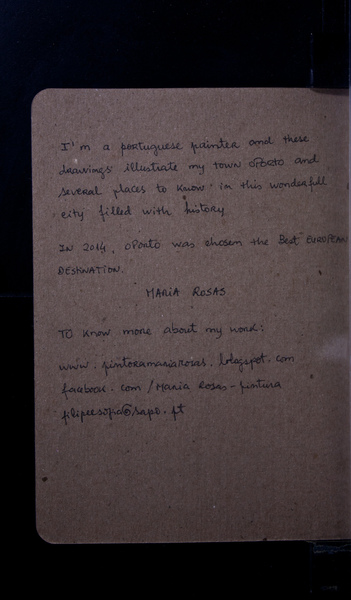 I'm a portuguese painter and these
drawings illustrate my town OPorto and
several places to know in this wonderfull
city filled with history
IN 2014, OPorto was chosen the Best EUROPEAN
DESTINATION.
MARIA ROSAS
TO know more about my work:
www.pintoramariarosas.blogspot.com
facebook.com/Maria Rosas-pintura
@sapo.pt